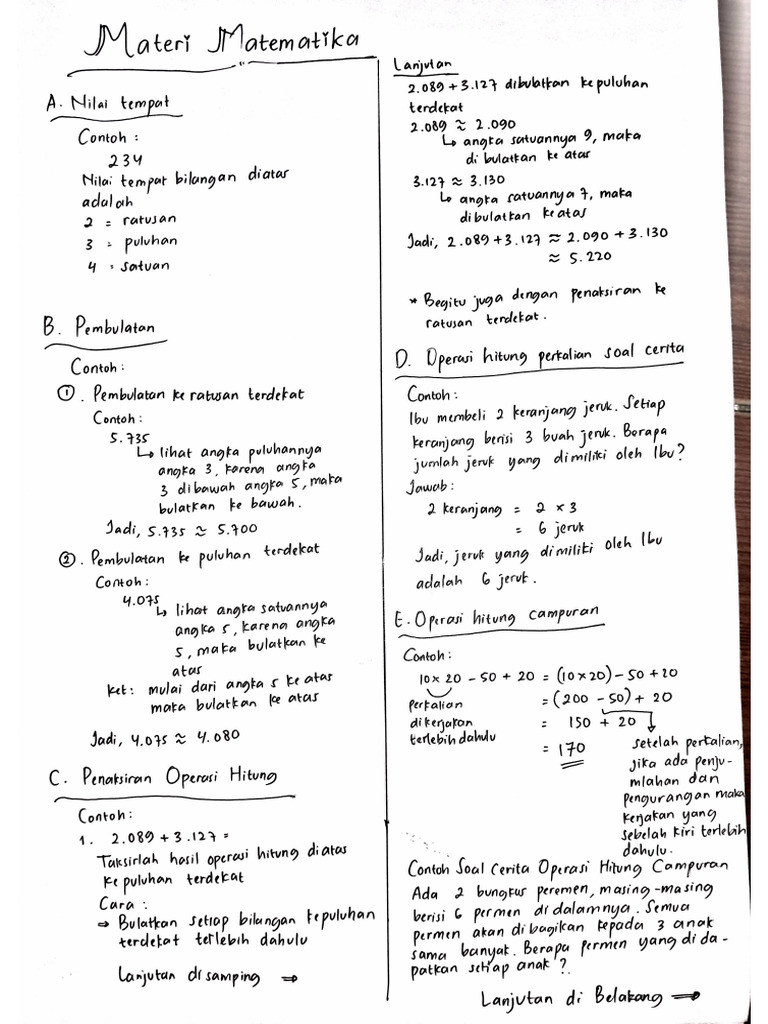 Materi Matematika
A. Nilai tempat
Contoh :
234
Nilai tempat bilangan diatas
adalah
2 = ratusan
3 = puluhan
4 = satuan
B. Pembulatan
Contoh:
1. Pembulatan ke ratusan terdekat
Contoh :
5.735
↳ lihat angka puluhannya
angka 3, karena angka
3 dibawah angka 5, maka
bulatkan ke bawah.
Jadi, 5.735 ≈ 5.700
2. Pembulatan ke puluhan terdekat
Contoh :
4.075
↳ lihat angka satuannya
angka 5, karena angka
5, maka bulatkan ke
atas
ket: mulai dari angka 5 ke atas
maka bulatkan ke atas
Jadi, 4.075 ≈ 4.080
C. Penaksiran Operasi Hitung
Contoh :
1. 2.089 + 3.127 =
Taksirlah hasil operasi hitung diatas
ke puluhan terdekat
Cara :
⇒ Bulatkan setiap bilangan kepuluhan
terdekat terlebih dahulu
Lanjutan disamping ⇒
Lanjutan
2.089 + 3.127 dibulatkan ke puluhan
terdekat
2.089 ≈ 2.090
↳ angka satuannya 9, maka
di bulatkan ke atas
3.127 ≈ 3.130
↳ angka satuannya 7, maka
dibulatkan keatas
Jadi, 2.089 + 3.127 ≈ 2.090 + 3.130
≈ 5.220
* Begitu juga dengan penaksiran ke
ratusan terdekat.
D. Operasi hitung perkalian soal cerita
Contoh :
Ibu membeli 2 keranjang jeruk. Setiap
keranjang berisi 3 buah jeruk. Berapa
jumlah jeruk yang dimiliki oleh Ibu?
Jawab :
2 keranjang = 2 × 3
= 6 jeruk
Jadi, jeruk yang dimiliki oleh Ibu
adalah 6 jeruk.
E. Operasi hitung campuran
Contoh :
10 × 20 - 50 + 20 = (10 × 20) - 50 + 20
perkalian = (200 - 50) + 20
dikerjakan = 150 + 20
terlebih dahulu = 170
setelah perkalian,
jika ada penju-
mlahan dan
pengurangan maka
kerjakan yang
sebelah kiri terlebih
dahulu.
Contoh Soal Cerita Operasi Hitung Campuran
Ada 2 bungkus peremen, masing-masing
berisi 6 permen di dalamnya. Semua
permen akan di bagikan kepada 3 anak
sama banyak. Berapa permen yang di da-
patkan setiap anak ?
Lanjutan di Belakang ⇒